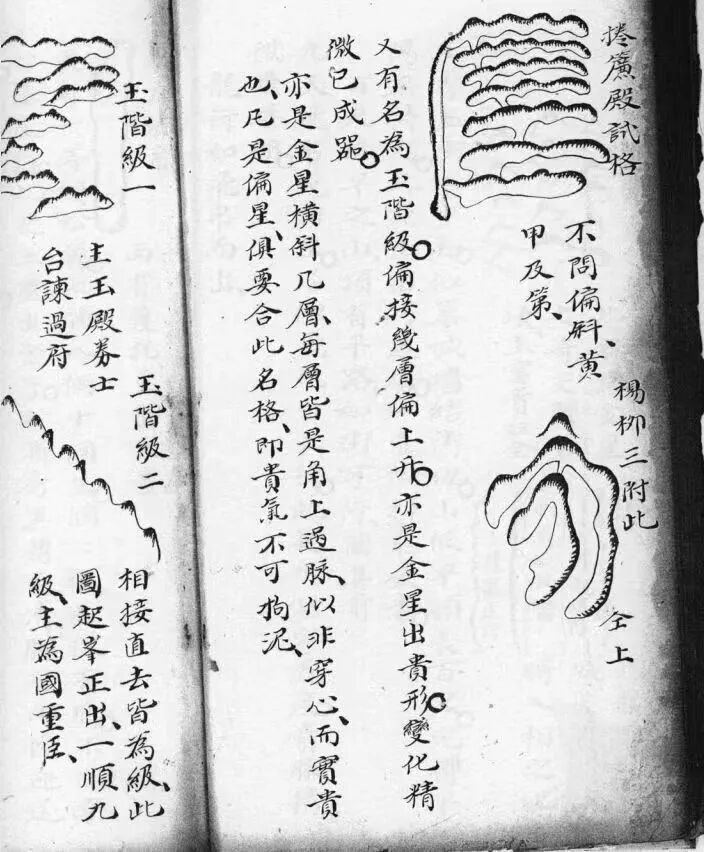 捲簾殿試格
不問偏斜、黄
甲及第、
楊柳三附此
仝上
又有名為玉階級。偏接幾層偏上升。亦是金星出貴形。變化精
微已成器。
亦是金星橫斜几層、每層皆是角上過脉、似非穿心、而實貴
也、凡是偏星、俱要合此名格、即貴氣不可拘泥、
玉階級一
主玉殿券士
台諫過府
玉階級二
相接直去皆為級、此
圖起峯正出、一順九
級、主為國重臣、